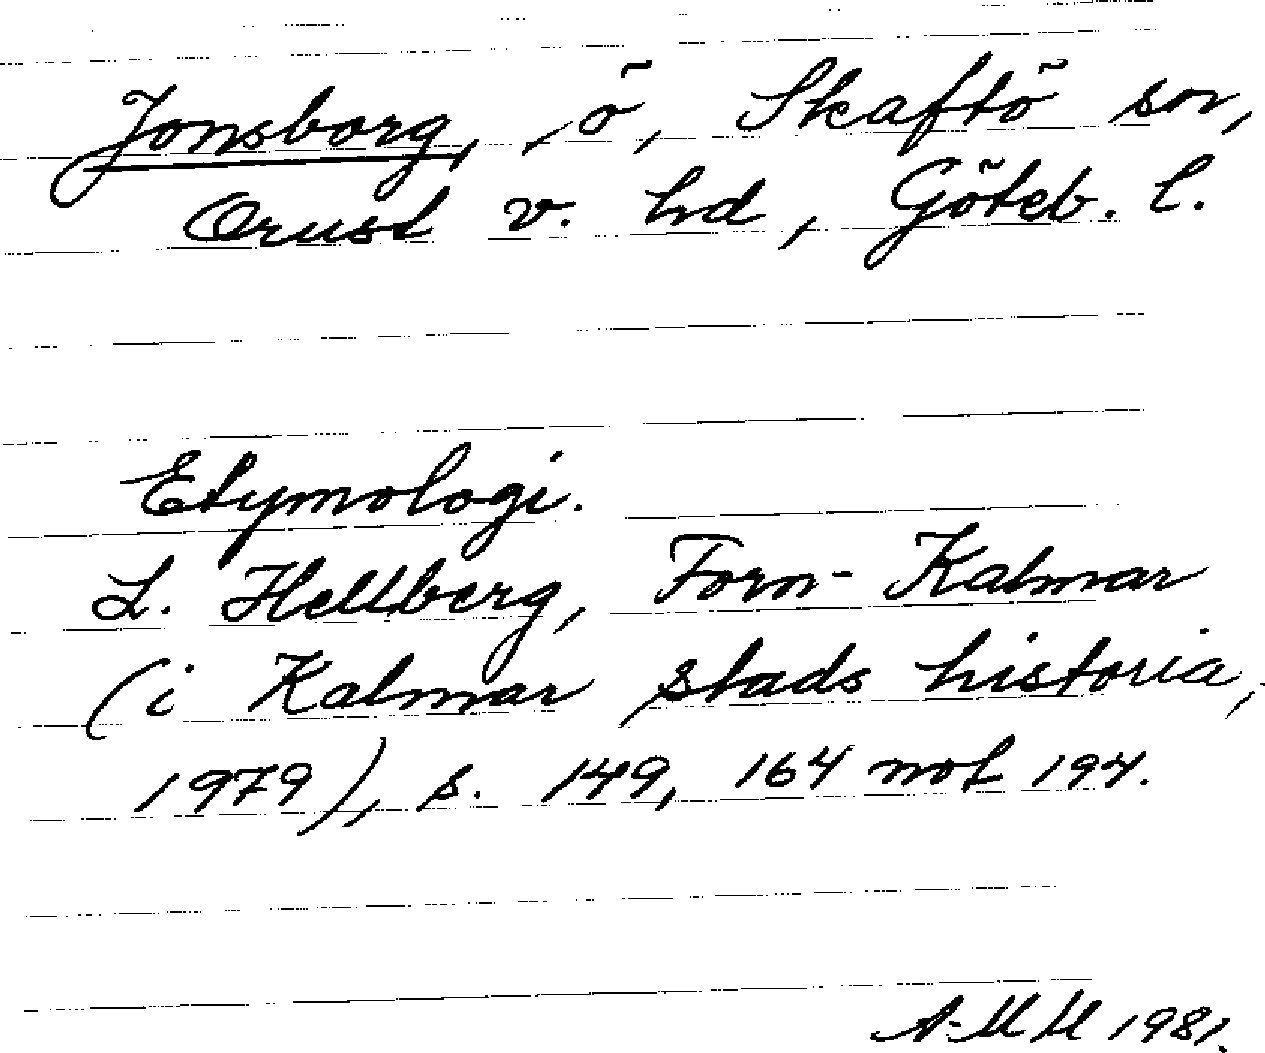 Jonsborg, ö, Skaftö sn,
Orust v. hd, Göteb. l.
Etymologi.
L. Hellberg, Forn-Kalmar
(i Kalmar stads historia,
1979), s. 149, 164 not 194.
A-MH 1981.